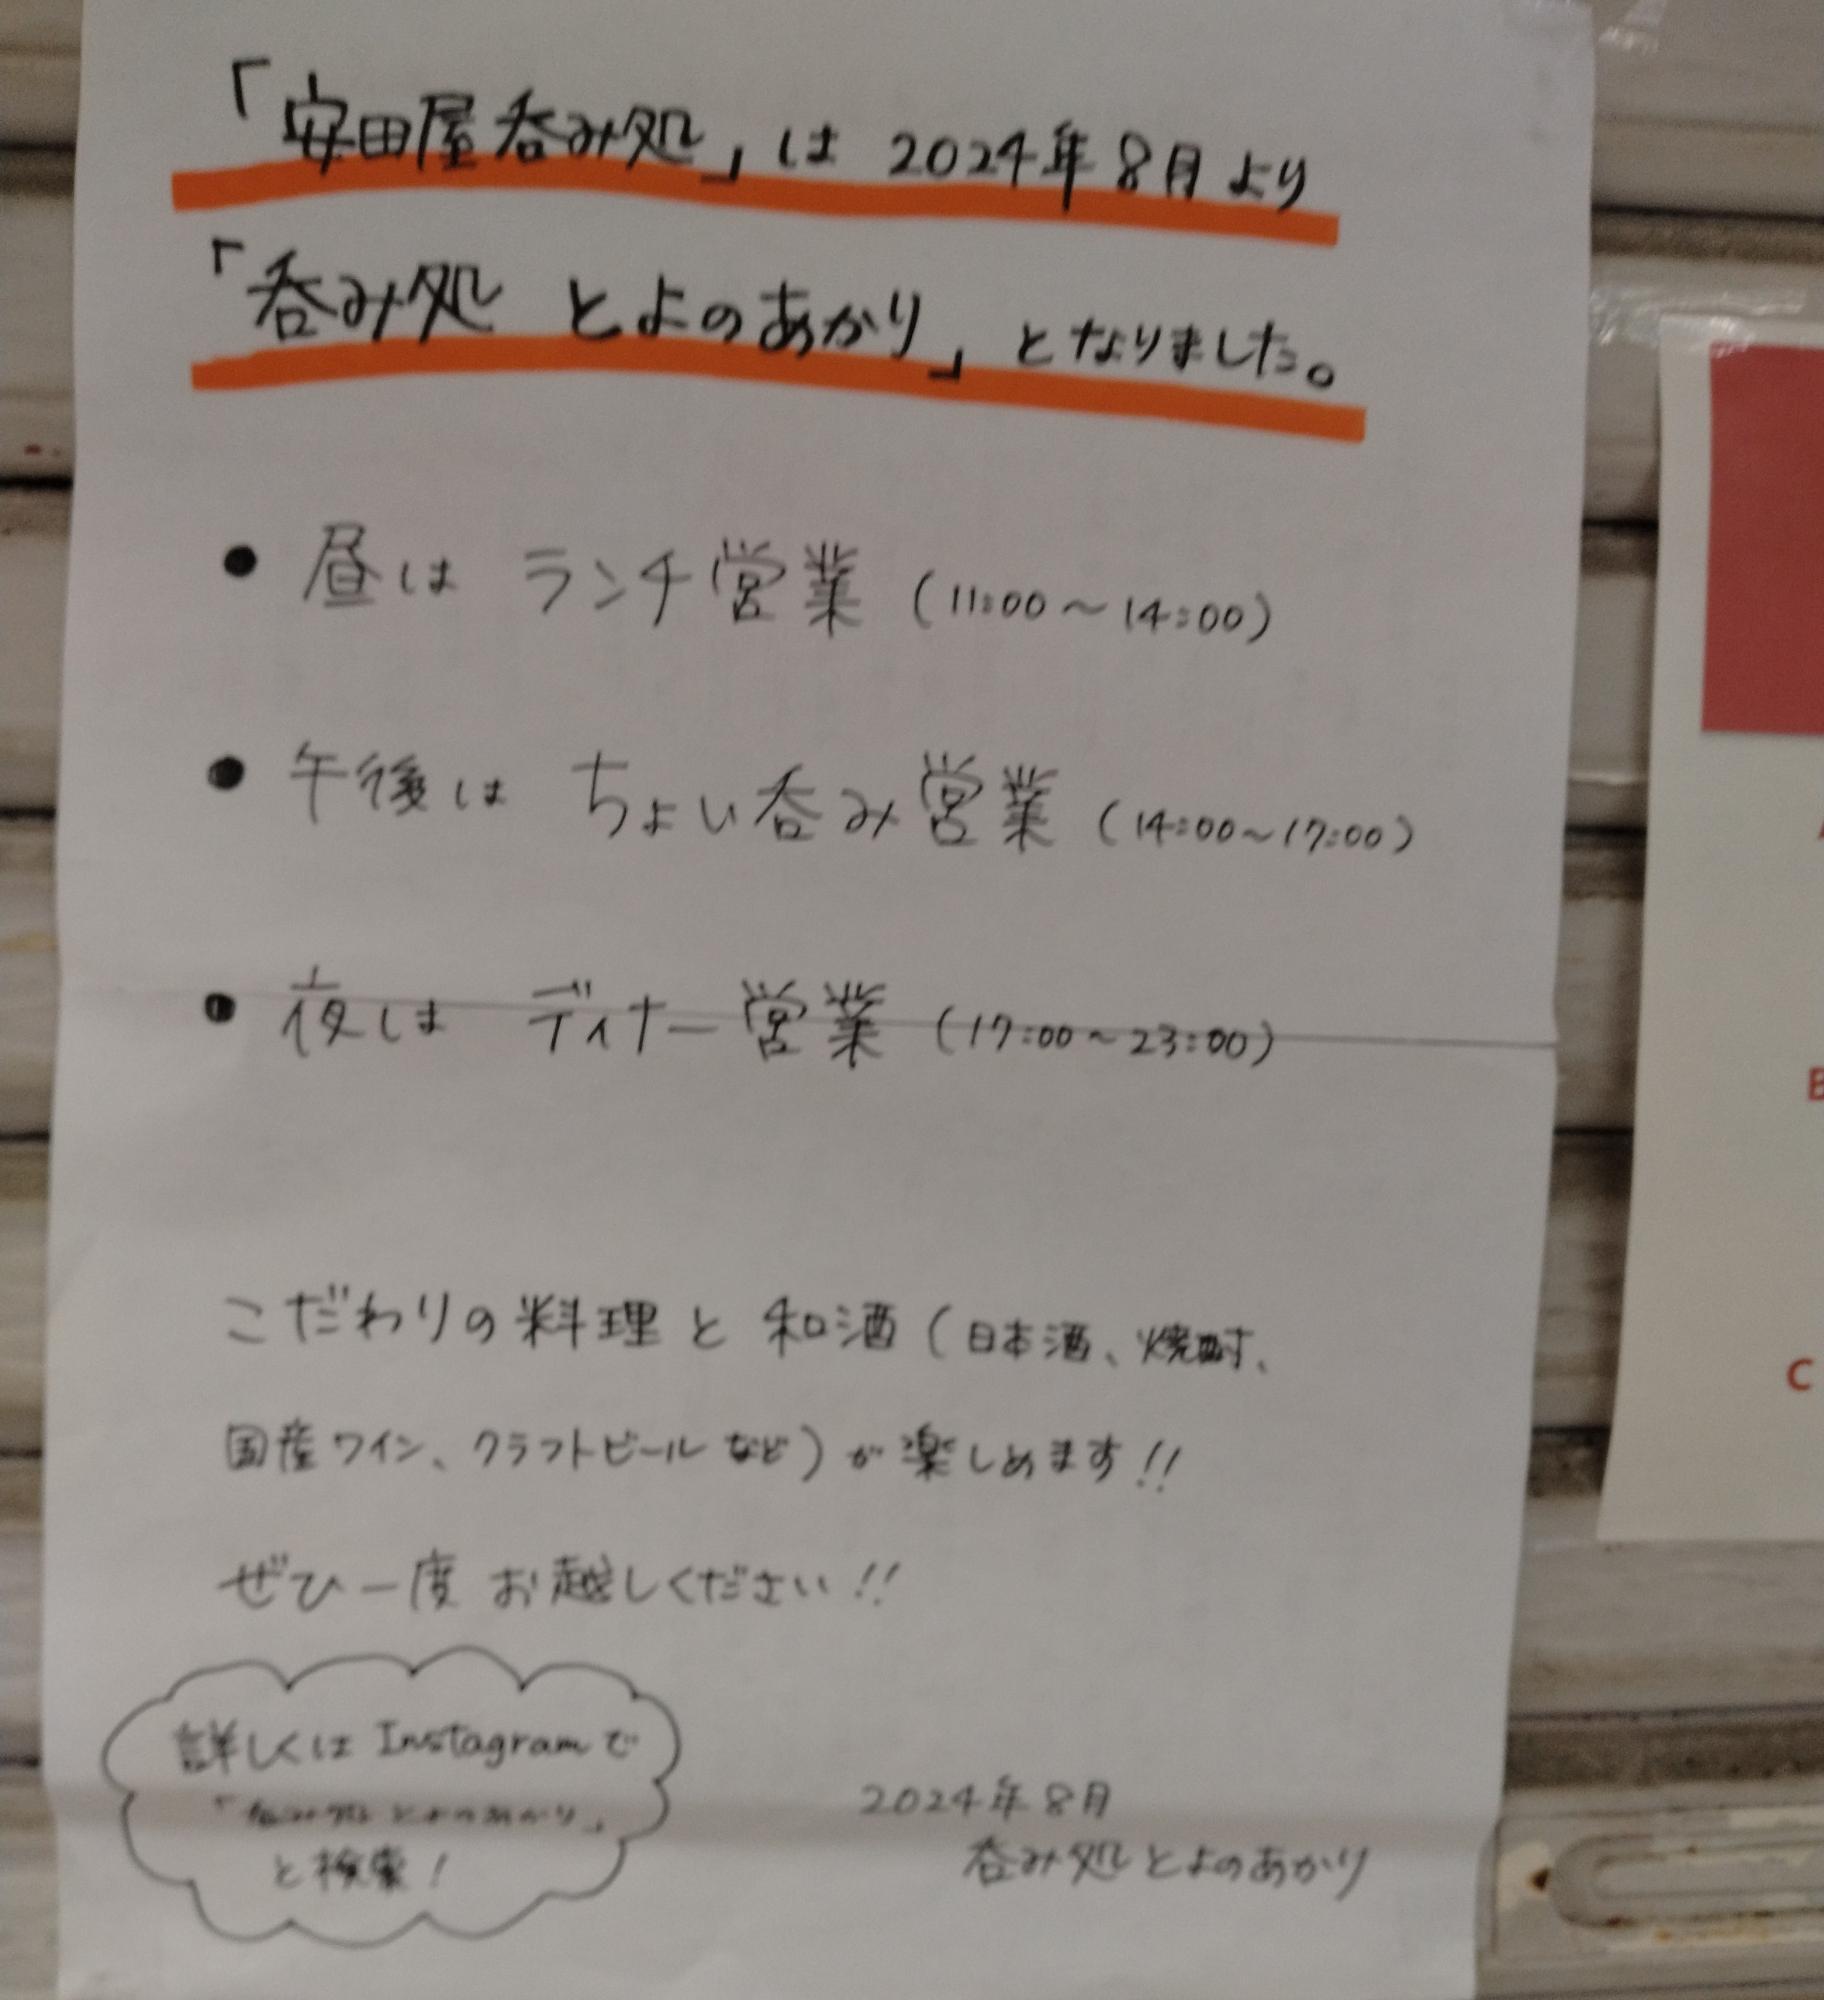 「安田屋呑み処」は 2024年8月より
「呑み処 とよのあかり」となりました。
● 昼は ランチ営業 (11:00～14:00)
● 午後は ちょい呑み営業 (14:00～17:00)
● 夜は ディナー営業 (17:00～23:00)
こだわりの料理と 和酒 (日本酒、焼酎、
国産ワイン、クラフトビールなど) が楽しめます!!
ぜひ一度 お越しください!!
詳しくは Instagramで
「呑み処 とよのあかり」
と検索!
2024年8月
呑み処 とよのあかり
B
C